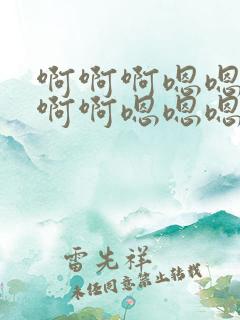 啊啊啊嗯嗯
啊啊嗯嗯嗯
雷先祥
未经同意禁止转载